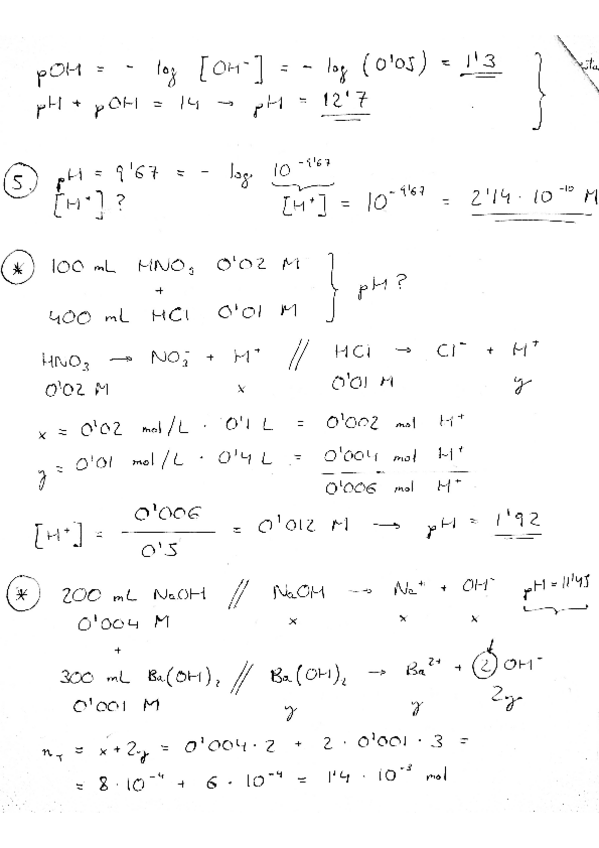 pOH = - log [OH⁻] = - log (0'05) = 1'3
pH + pOH = 14 → pH = 12'7
5. pH = 9'67 = - log 10⁻⁹'⁶⁷
[H⁺] ? [H⁺] = 10⁻⁹'⁶⁷ = 2'14 · 10⁻¹⁰ M
* 100 mL HNO₃ 0'02 M
+ pH ?
400 mL HCl 0'01 M
HNO₃ → NO₃⁻ + H⁺ // HCl → Cl⁻ + H⁺
0'02 M x 0'01 M y
x = 0'02 mol/L · 0'1 L = 0'002 mol H⁺
y = 0'01 mol/L · 0'4 L = 0'004 mol H⁺
0'006 mol H⁺
[H⁺] = 0'006 / 0'5 = 0'012 M → pH = 1'92
* 200 mL NaOH // NaOH → Na⁺ + OH⁻ pH = 11'45
0'004 M x x x
+
300 mL Ba(OH)₂ // Ba(OH)₂ → Ba²⁺ + 2 OH⁻
0'001 M y y 2y
n_T = x + 2y = 0'004 · 2 + 2 · 0'001 · 3 =
= 8 · 10⁻⁴ + 6 · 10⁻⁴ = 1'4 · 10⁻³ mol